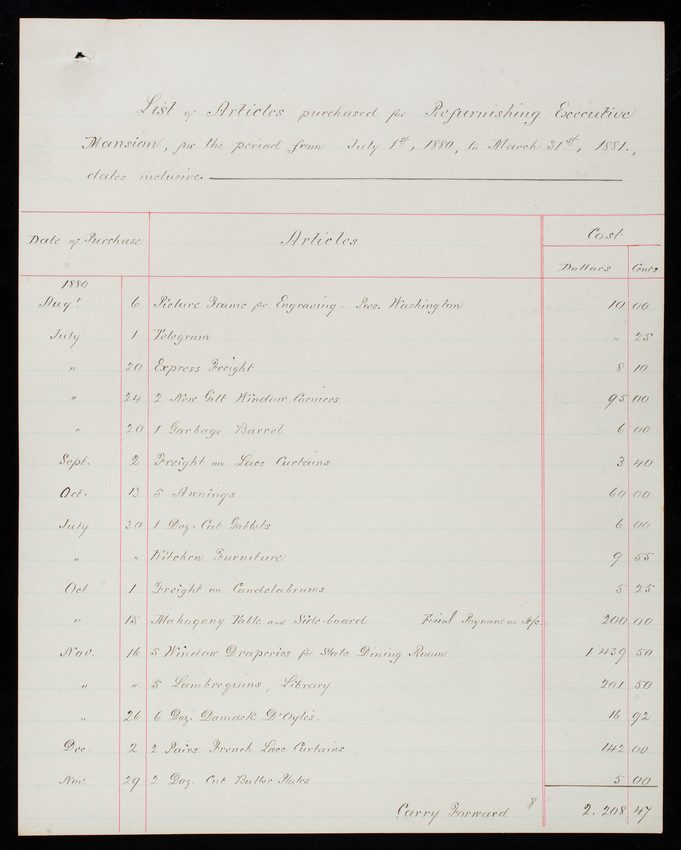 List of Articles purchased for Refurnishing Executive
Mansion, for the period from July 1st, 1880, to March 31st, 1881.,
dates inclusive.
Date of Purchase Articles Cost
Dollars Cents
1880
Augt. 6 Picture Frame for Engraving - Pres. Washington 10 00
July 1 Telegram " 25
" 20 Express Freight 8 10
" 24 2 New Gilt Window Cornices 95 00
" 20 1 Garbage Barrel 6 00
Sept. 2 Freight on Lace Curtains 3 40
Oct. 13 5 Awnings 60 00
July 30 1 Doz. Cut Goblets 6 00
" " Kitchen Furniture 9 55
Oct 1 Freight on Candelabrums 5 25
" 15 Mahogany Table and Side-board Final Payment on A/c. 200 00
Nov. 16 5 Window Draperies for State Dining Room 1.439 50
" " 5 Lambrequins, Library 201 50
" 26 6 Doz. Damask D'Oyles. 16 92
Dec. 2 2 Pairs French Lace Curtains 142 00
Nov. 29 2 Doz. Cut Butter Plates 5 00
Carry Forward $ 2.208 47